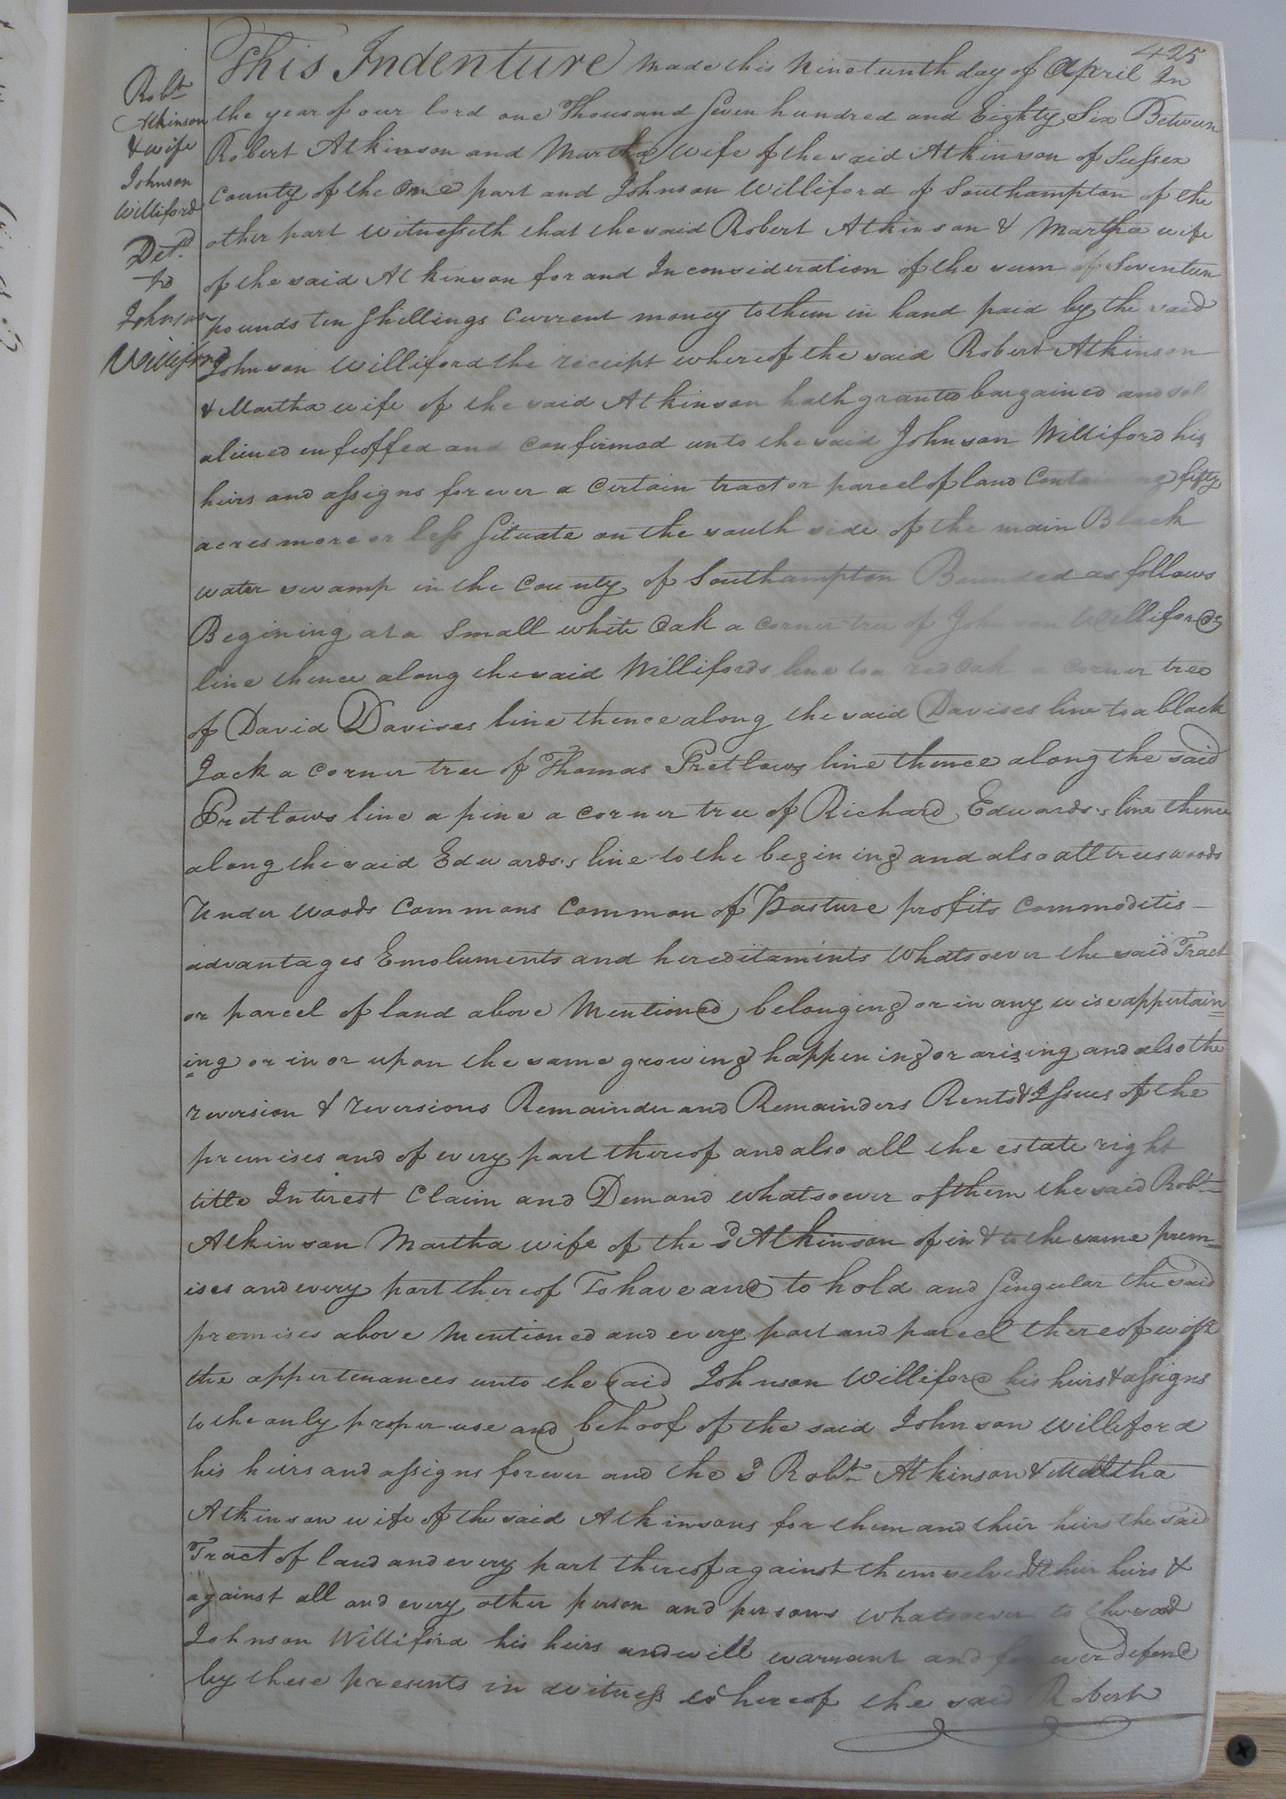 425
Robt
Atkinson
& wife
Johnson
Williford
Det.d
to
Johnson
Williford
This Indenture made this Nineteenth day of April In
the year of our lord one Thousand Seven hundred and Eighty Six Between
Robert Atkinson and Martha Wife of the said Atkinson of Sussex
County of the One part and Johnson Williford of Southampton of the
other part Witnesseth that the said Robert Atkinson & Martha wife
of the said Atkinson for and In consideration of the sum of Seventeen
pounds ten Shillings Current money to them in hand paid by the said
Johnson Williford the receipt whereof the said Robert Atkinson
& Martha wife of the said Atkinson hath granted bargained and sol
aliened enfeoffed and confirmed unto the said Johnson Williford his
heirs and assigns for ever a Certain tract or parcel of land Containing fifty
acres more or less Situate on the south side of the main Black
water swamp in the County of Southampton Bounded as follows
Begining at a Small white Oak a corner tree of Johnson Willifords
line thence along the said Willifords line to a red oak a corner tree
of David Davises line thence along the said Davises line to a black
Jack a corner tree of Thomas Pretlows line thence along the said
Pretlows line a pine a corner tree of Richard Edwards's line thence
along the said Edwards's line to the begining and also all trees woods
Under woods Commons Common of Pasture profits Commoditis
advantages Emoluments and hereditaments Whatsoever the said Tract
or parcel of land above Mentioned belonging or in any wise appertain=
ing or in or upon the same growing happening or arising and also the
reversion & reversions Remainder and Remainders Rents & Issues of the
premises and of every part thereof and also all the estate right
title Interest Claim and Demand whatsoever of them the said Robt
Atkinson Martha wife of the sd Atkinson of in & to the same prem=
ises and every part thereof To have and to hold and Singular the said
premises above Mentioned and every part and parcel thereof with
the appertenances unto the said Johnson Williford his heirs & assigns
to the only proper use and behoof of the said Johnson Williford
his heirs and assigns forever and the sd Robt Atkinson & Martha
Atkinson wife of the said Atkinsons for them and their heirs the said
Tract of land and every part thereof against themselves & their heirs &
against all and every other person and persons whatsoever to the said
Johnson Williford his heirs and will warrant and for ever defend
by these presents in witness whereof the said Robert